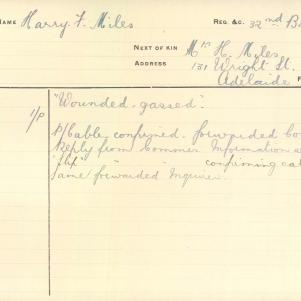 NAME Harry F. Miles REG. &C. 32nd B
NEXT OF KIN Mrs H. Miles
ADDRESS 131 Wright St.
Adelaide
"Wounded. gassed."
P/Cable confirmed. forwarded
Reply from Commr Information
" " " confirming
same forwarded Inquirer.